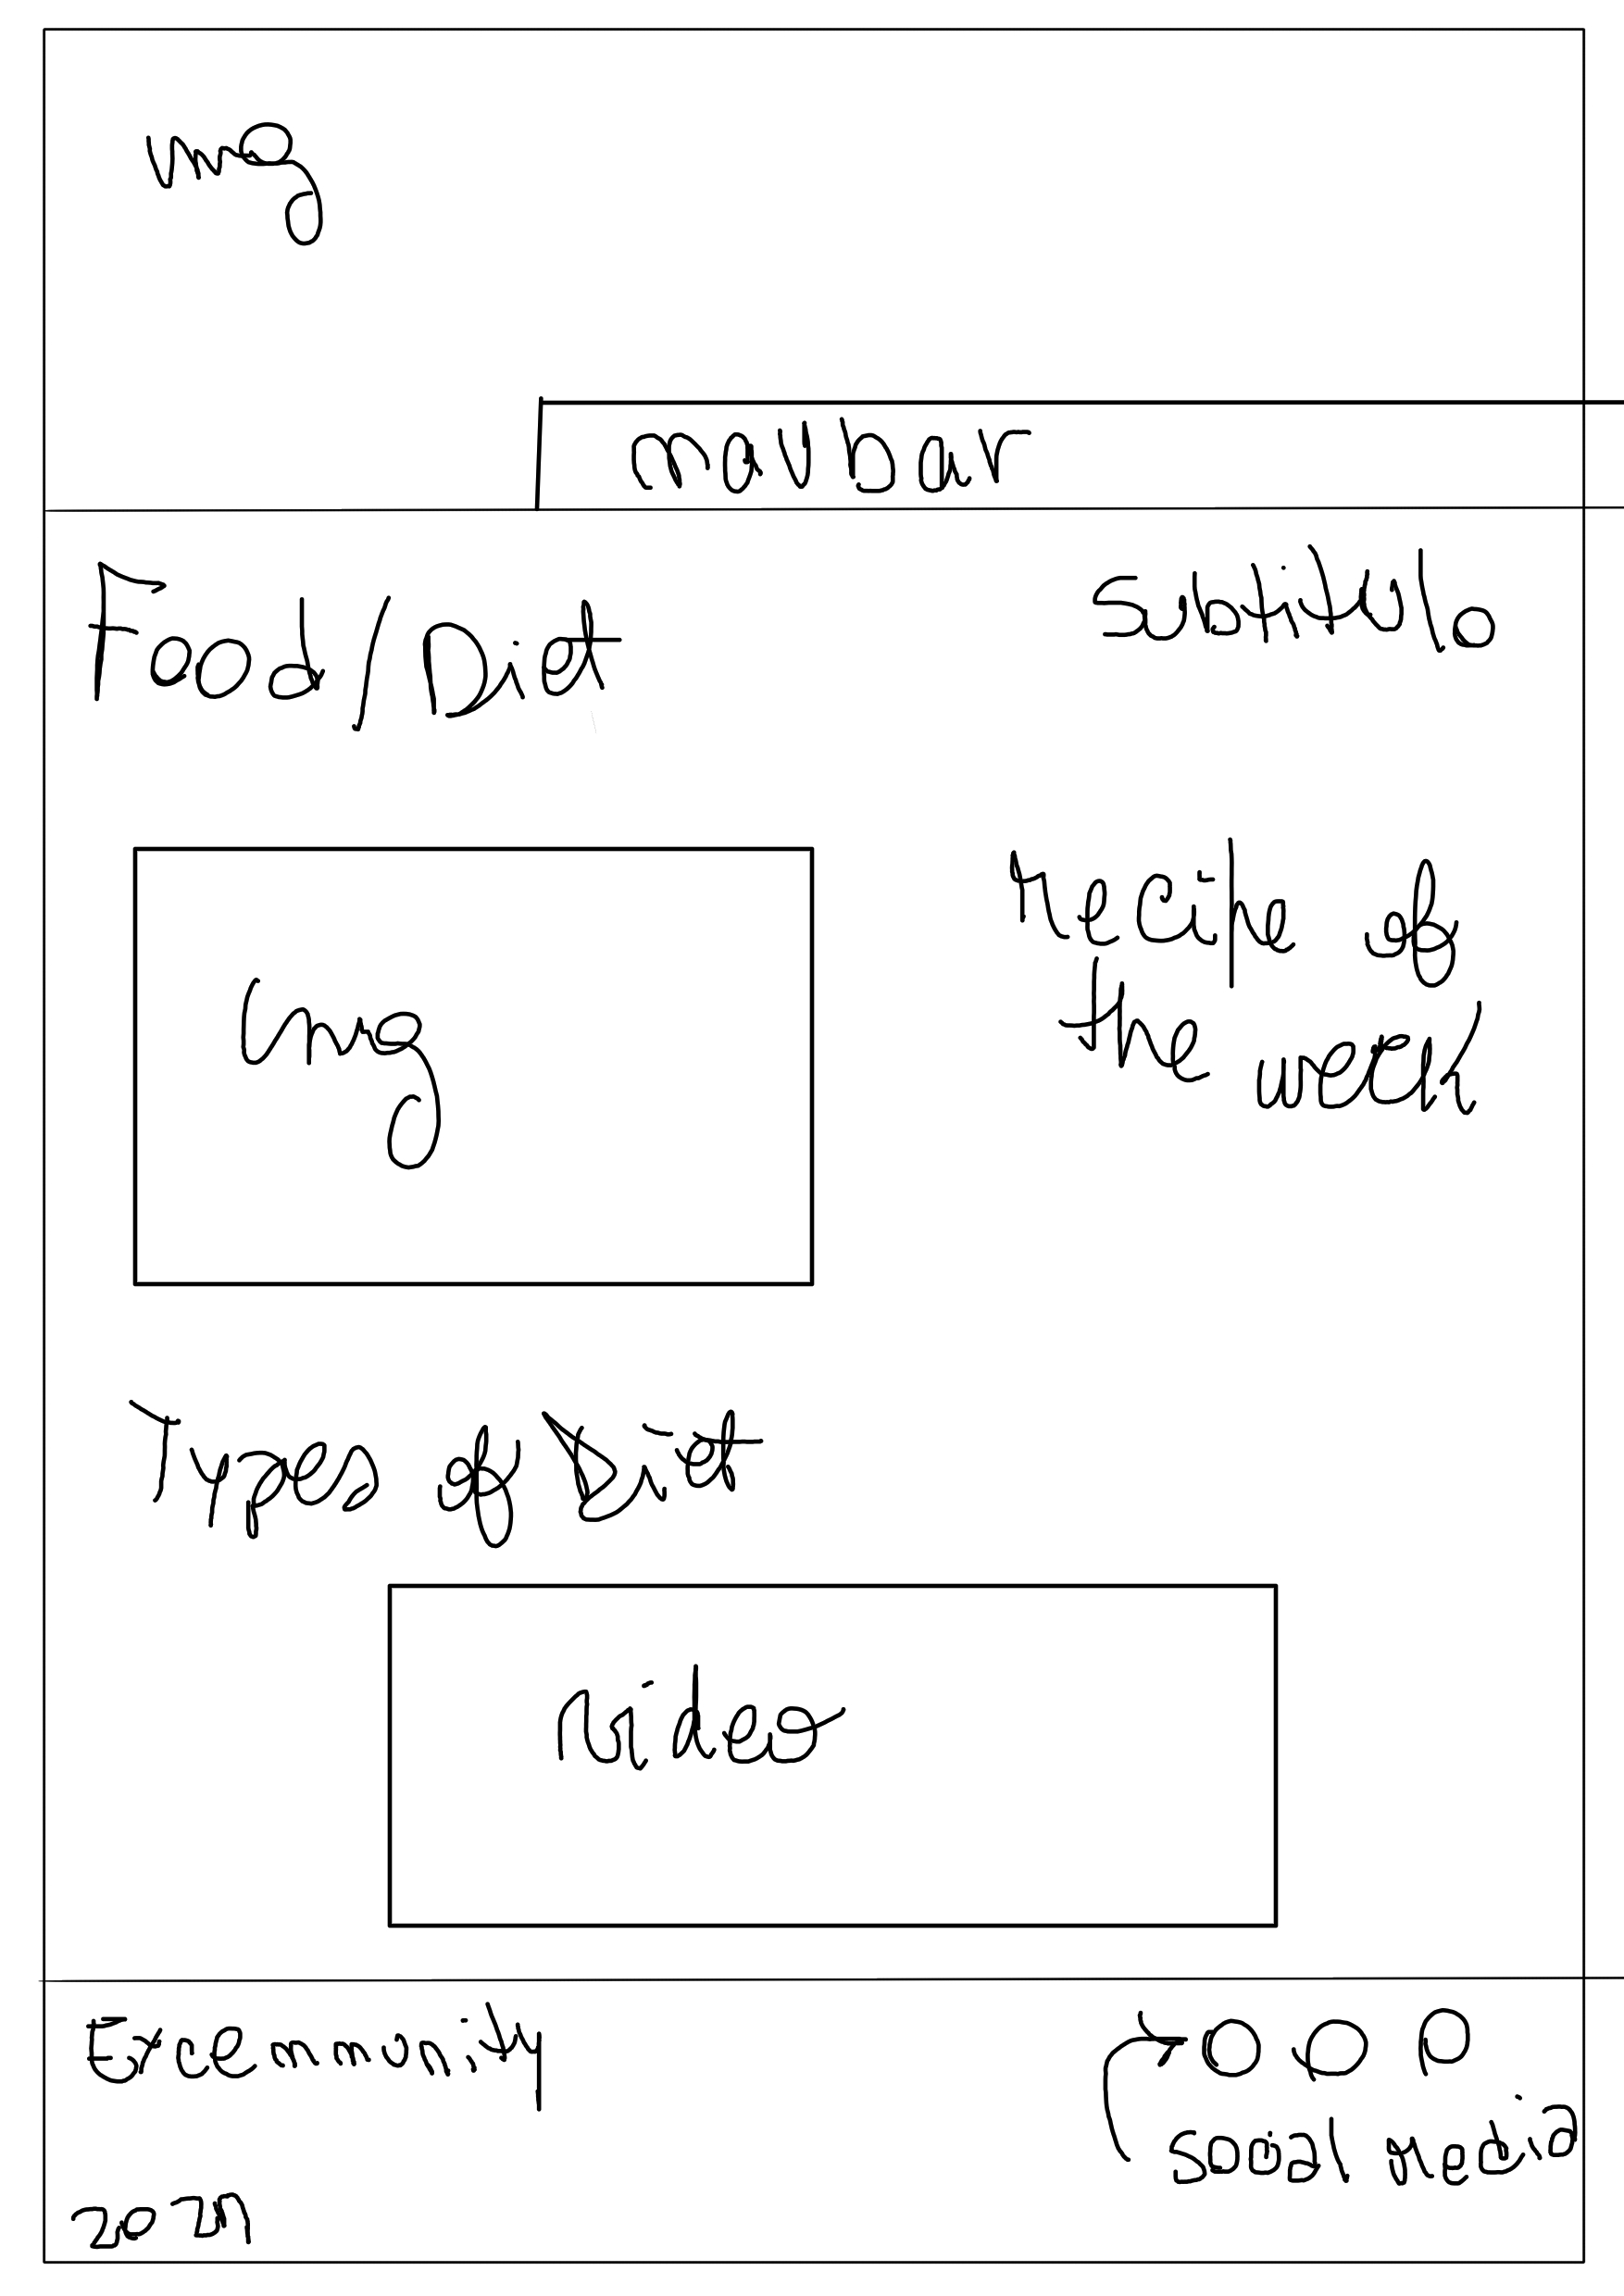 img
navbar
Food/Diet
Subtitulo
recipe of
the week
img
Types of Diet
video
2021
Social Media